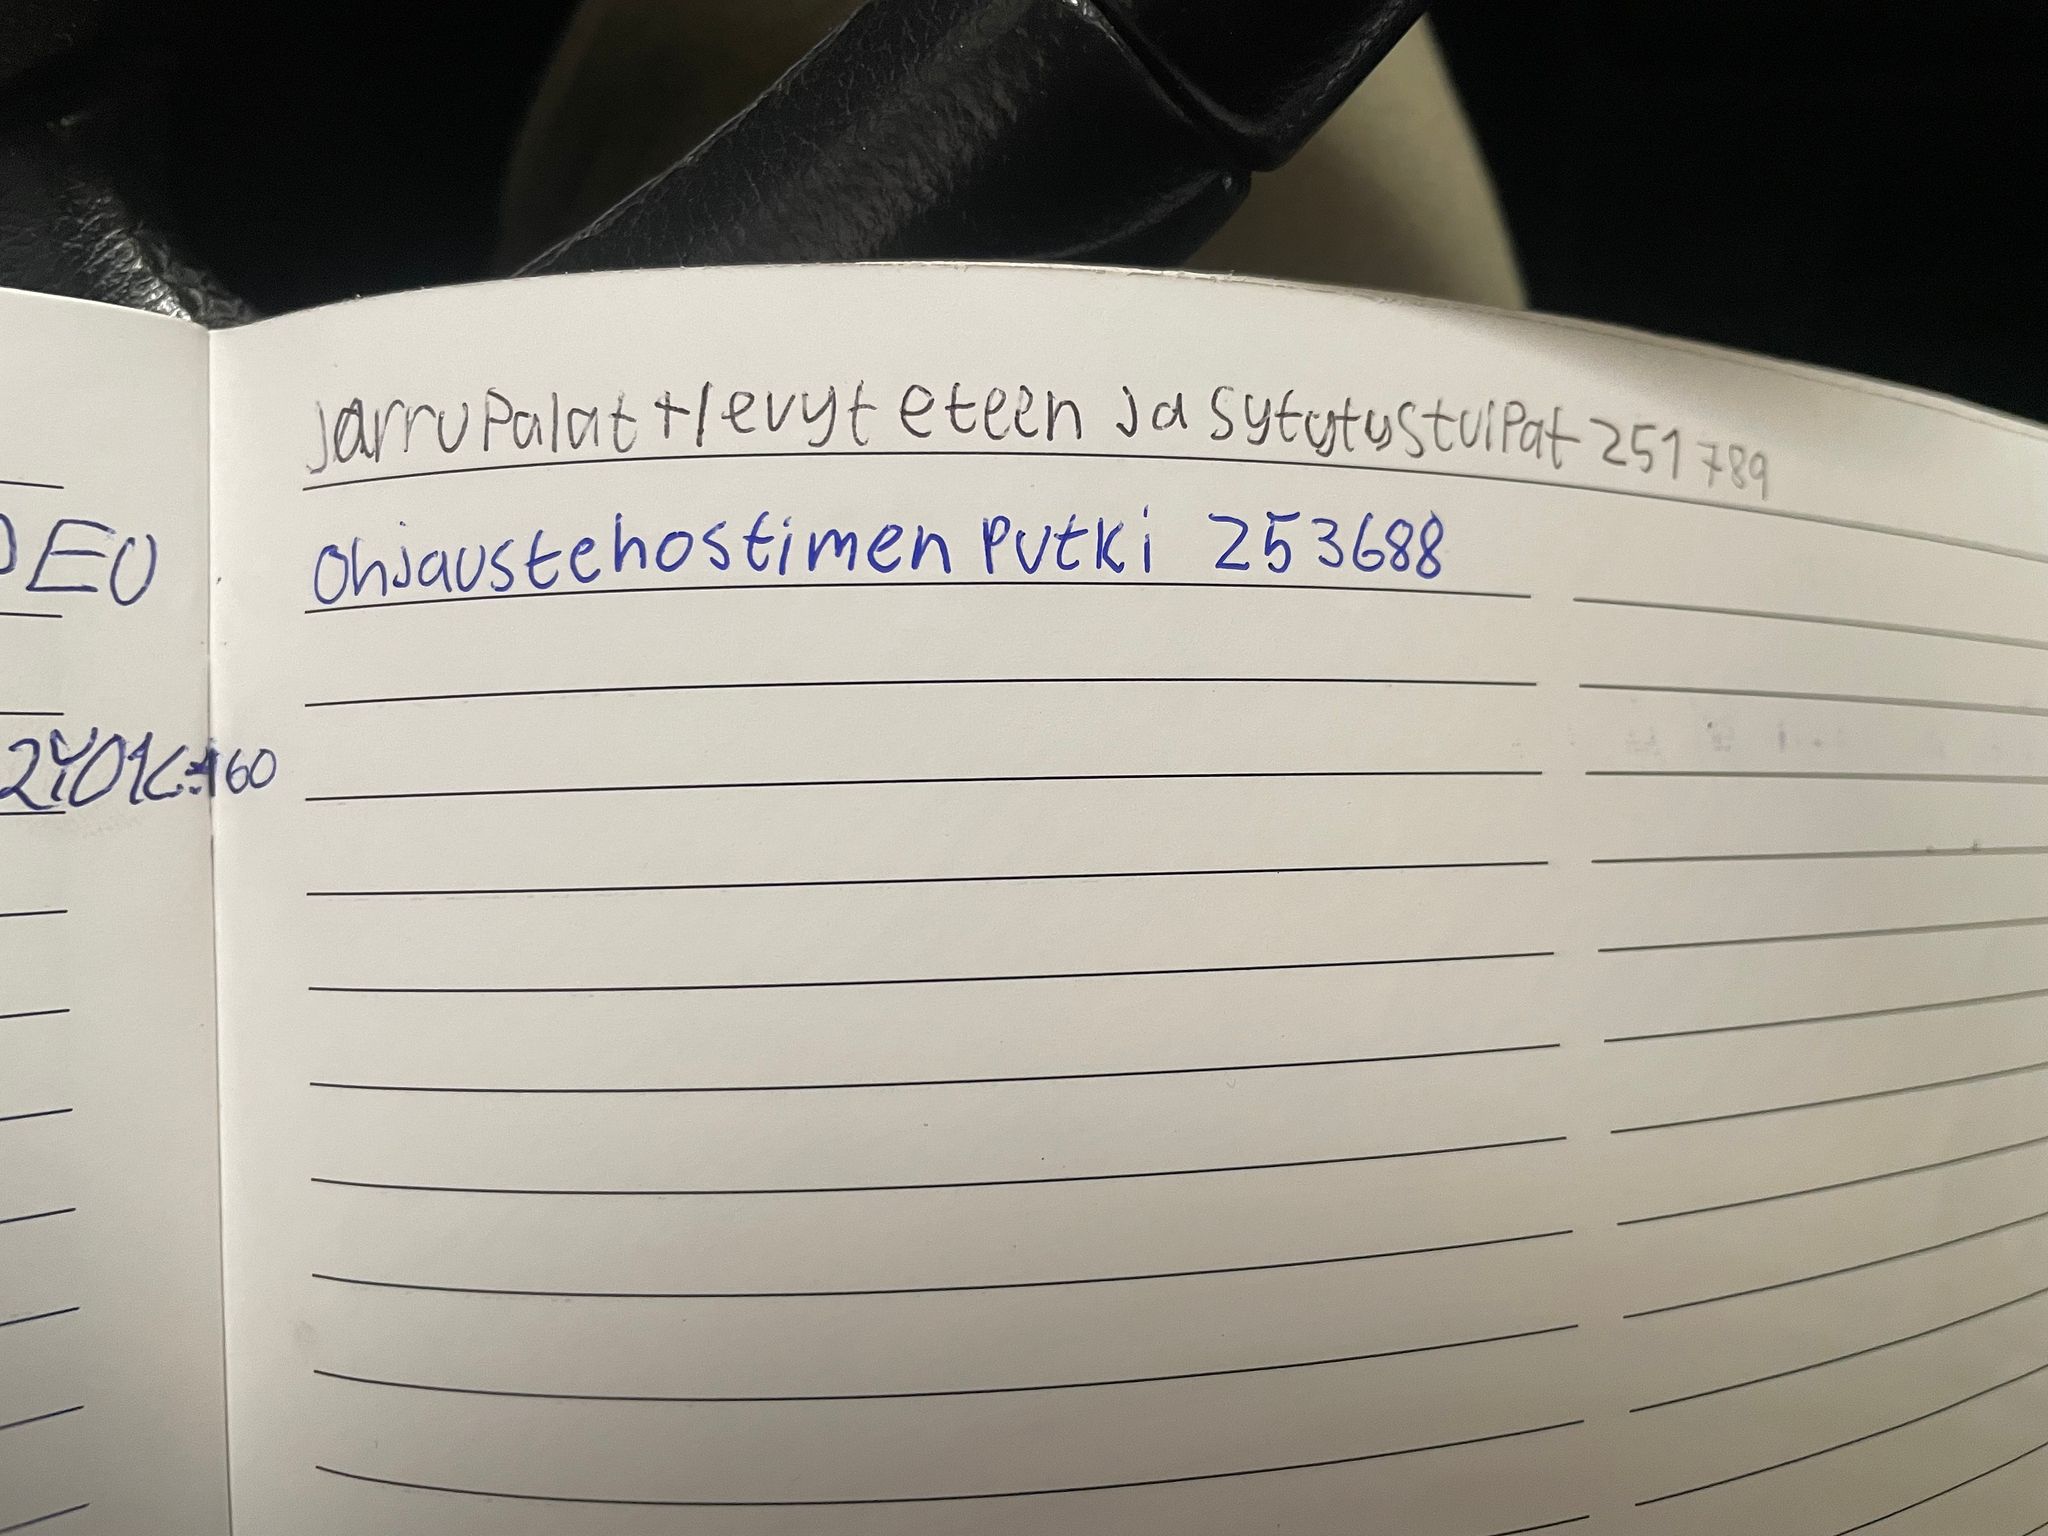 DEU
2Y01C:160
Jarrupalat + levyt eteen ja sytytystulpat 251 789
Ohjaustehostimen putki 253688